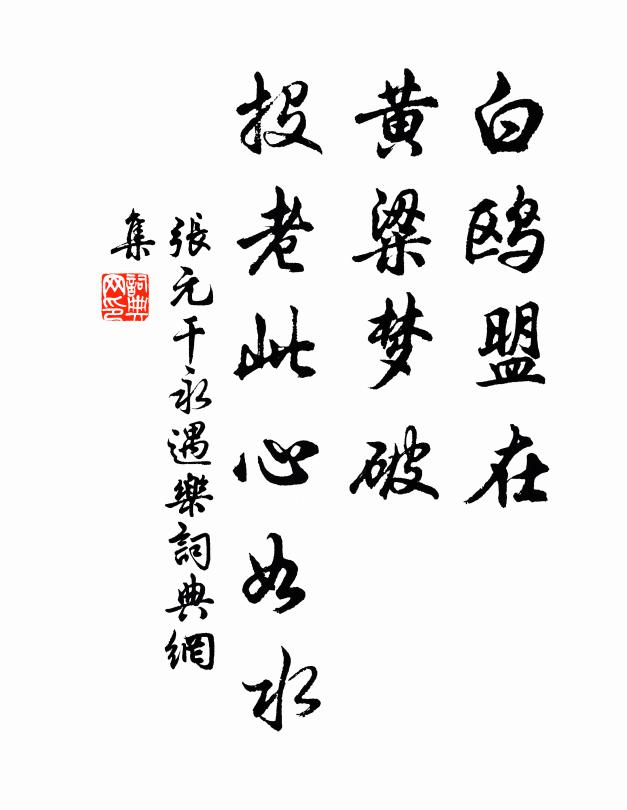 白鸥盟在
黄粱梦破
投老此心如水
張元干永遇樂詞典網
集
詞典
网印